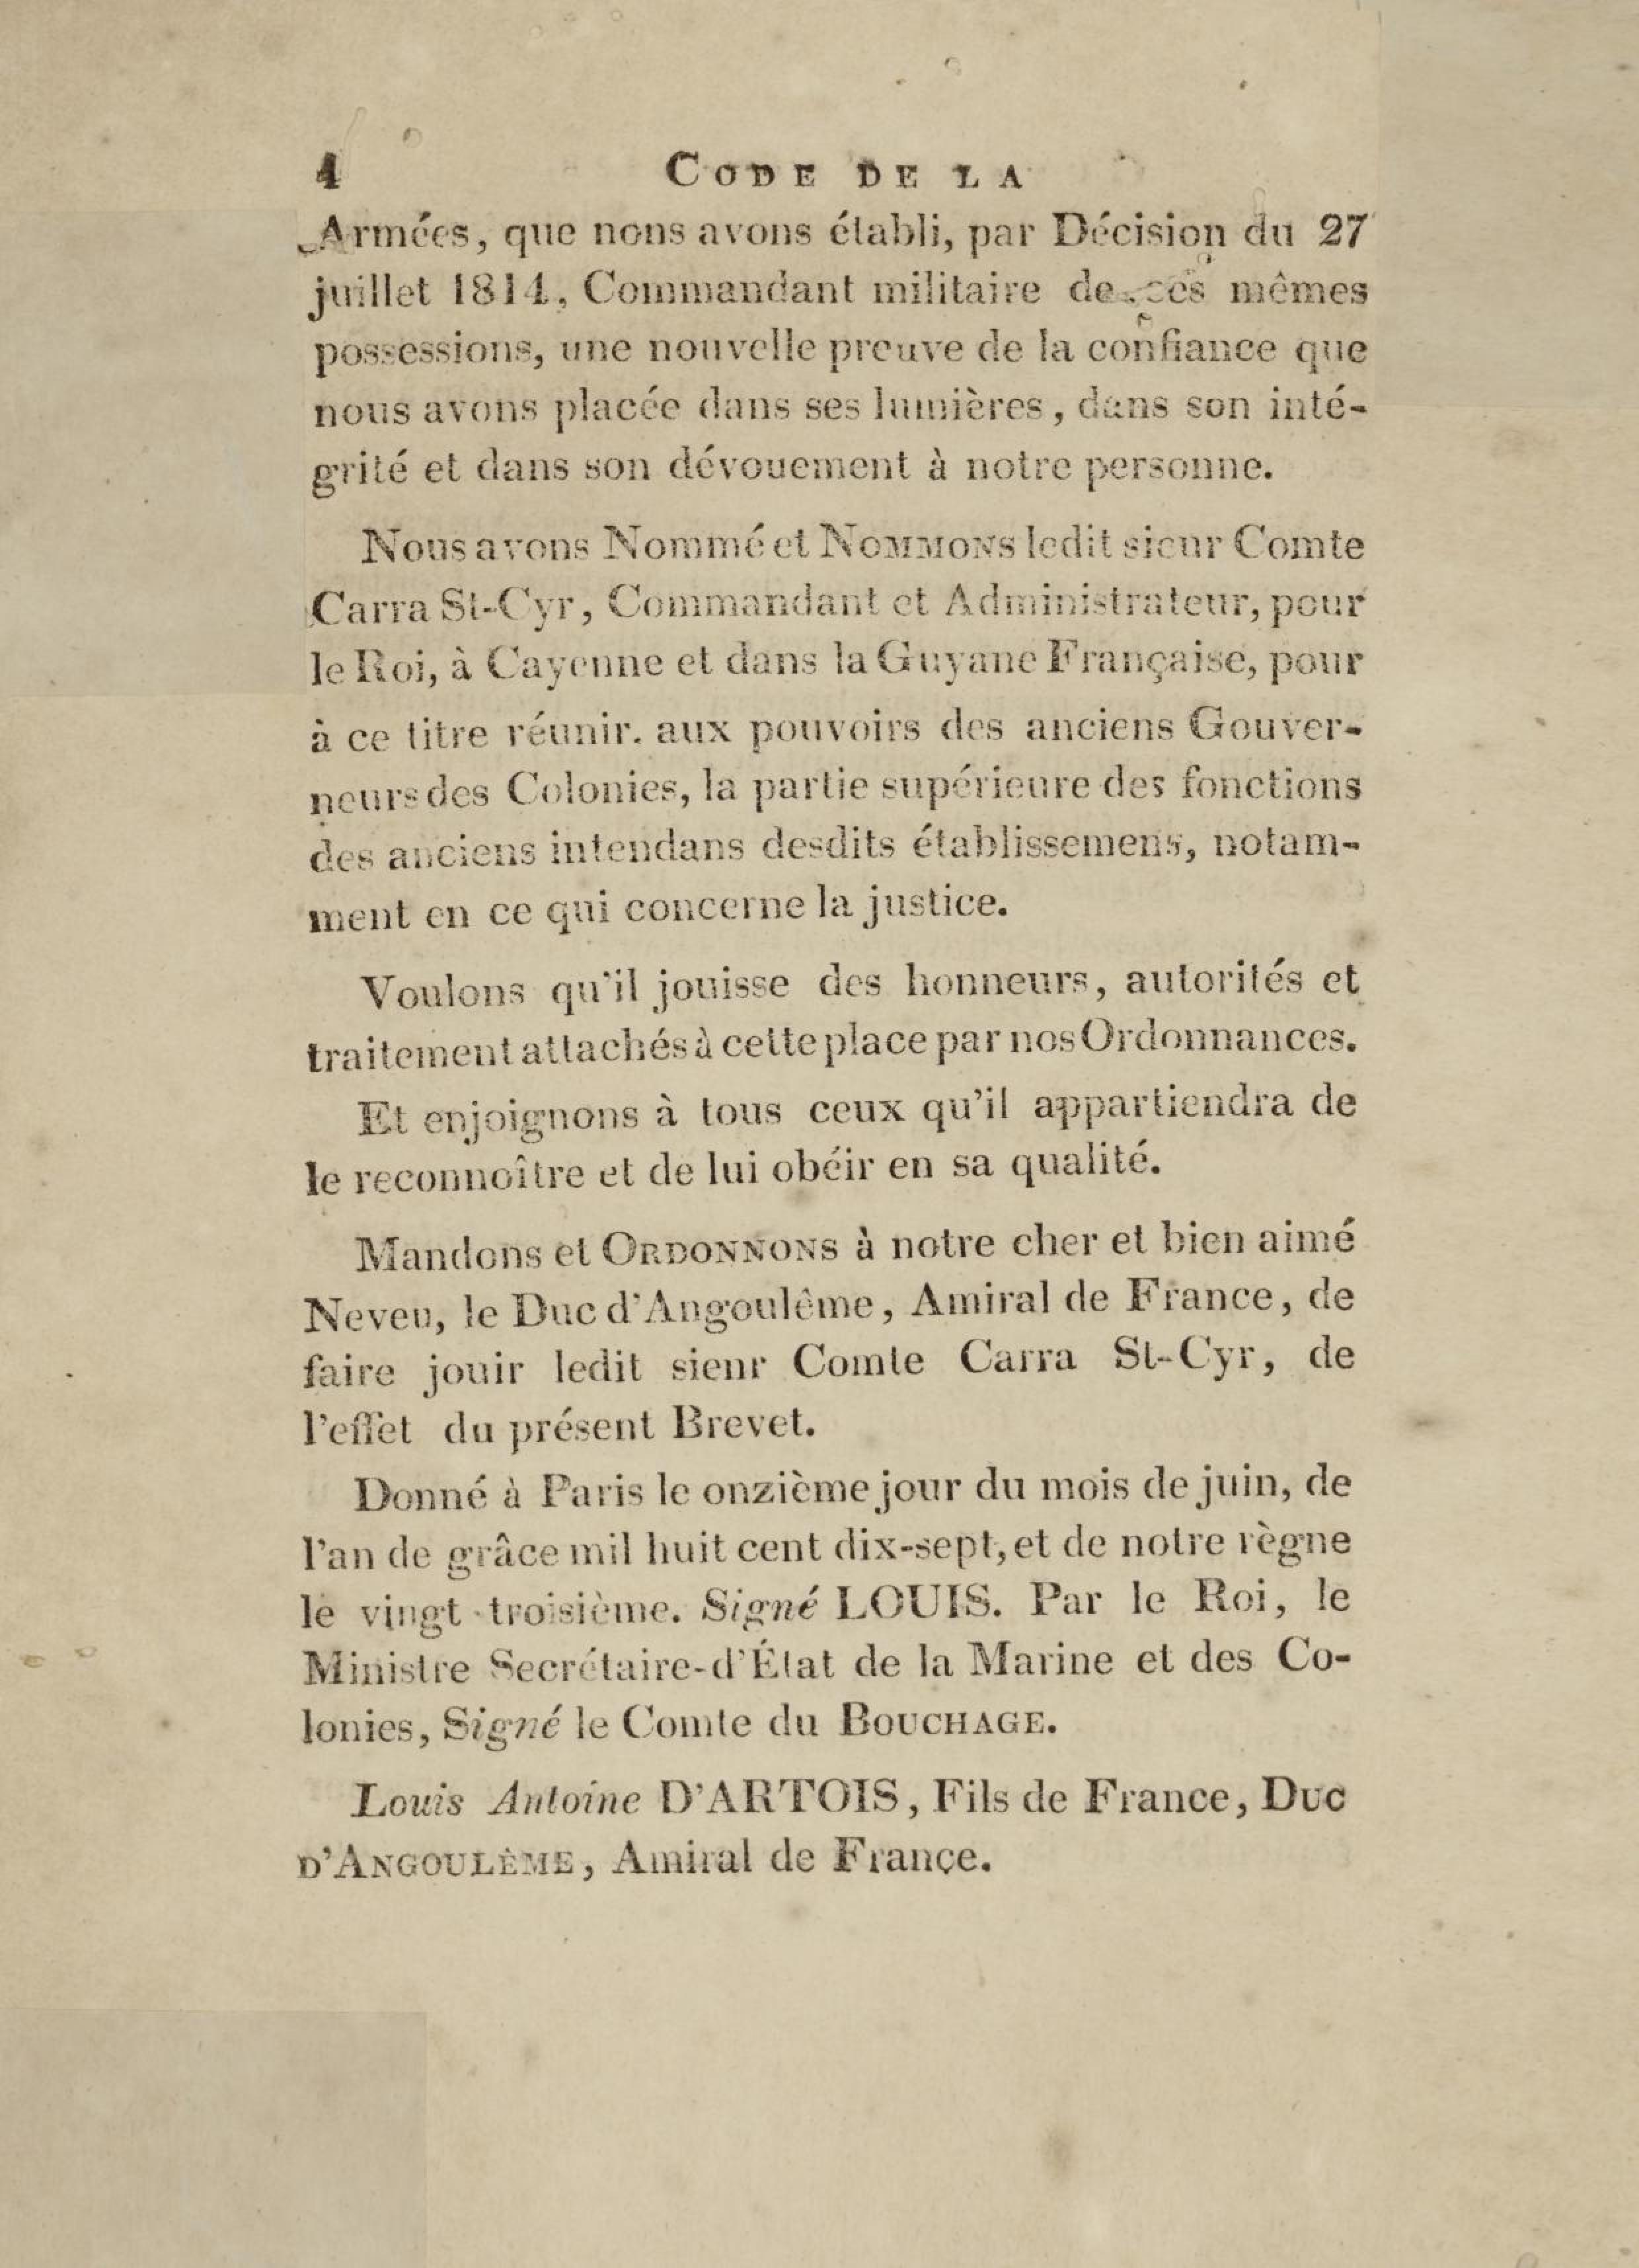 4 CODE DE LA
Armées, que nons avons établi, par Décision du 27
juillet 1814, Commandant militaire de ces mêmes
possessions, une nouvelle preuve de la confiance que
nous avons placée dans ses lumières, dans son inté-
grité et dans son dévouement à notre personne.
Nous avons Nommé et NOMMONS ledit sieur Comte
Carra St-Cyr, Commandant et Administrateur, pour
le Roi, à Cayenne et dans la Guyane Française, pour
à ce titre réunir. aux pouvoirs des anciens Gouver-
neurs des Colonies, la partie supérieure des fonctions
des anciens intendans desdits établissemens, notam-
ment en ce qui concerne la justice.
Voulons qu'il jouisse des honneurs, autorités et
traitement attachés à cette place par nos Ordonnances.
Et enjoignons à tous ceux qu'il appartiendra de
le reconnoître et de lui obéir en sa qualité.
Mandons et ORDONNONS à notre cher et bien aimé
Neveu, le Duc d'Angoulême, Amiral de France, de
faire jouir ledit sienr Comte Carra St-Cyr, de
l'effet du présent Brevet.
Donné à Paris le onzième jour du mois de juin, de
l'an de grâce mil huit cent dix-sept, et de notre règne
le vingt-troisième. Signé LOUIS. Par le Roi, le
Ministre Secrétaire-d'État de la Marine et des Co-
lonies, Signé le Comte du BOUCHAGE.
Louis Antoine D'ARTOIS, Fils de France, DUC
D'ANGOULÊME, Amiral de Françe.